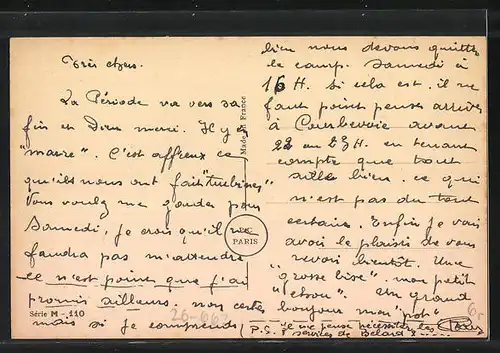 Très chers.
La Période va vers sa
fin et Dieu merci. Il y a
"marre". C'est affreux ce
qu'ils nous ont fait "turbiner"
Vous voulez me garder pour
Samedi, je crois qu'il ne
faudra pas m'attendre
ce n'est point que j'ai
promis ailleurs. non certes
mais si je comprends
bien nous devons quitter
le camp. Samedi à
16 H. Si cela est. il ne
faut point penser arriver
à Courbevoie avant
22 ou 23 H. en tenant
compte que tout
aille bien. ce qui
n'est pas du tout
certain. Enfin je vais
avoir le plaisir de vous
revoir bientôt. Une
"grosse bise". mon petit
"chou". un grand
bonjour mon "pot"
P.S. je ne pense nécessiter les
services de Belard
Made in France
PARIS
Série M - 110
26-662